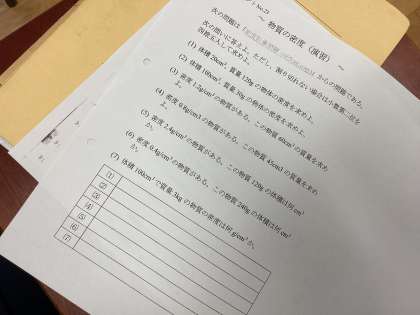 ト No.23
～ 物質の密度（演習） ～
次の問題は から の問題である。
次の問いに答えよ。ただし、割り切れない場合は小数第二位を
四捨五入して求めよ。
(1) 体積 20cm³、質量 120g の物体の密度を求めよ。
(2) 体積 100cm³、質量 50g の物体の密度を求めよ。
(3) 密度 1.2g/cm³ の物質がある。この物質 60cm³ の質量を求め
よ。
(4) 密度 0.8g/cm3 の物質がある。この物質 45cm3 の質量を求め
よ。
(5) 密度 2.4g/cm³ の物質がある。この物質 120g の体積は何 cm³
か。
(6) 密度 0.4g/cm³ の物質がある。この物質 240g の体積は何 cm³
か。
(7) 体積 100cm³ で質量 3kg の物質の密度は何 g/cm³ か。
(1)
(2)
(3)
(4)
(5)
(6)
(7)